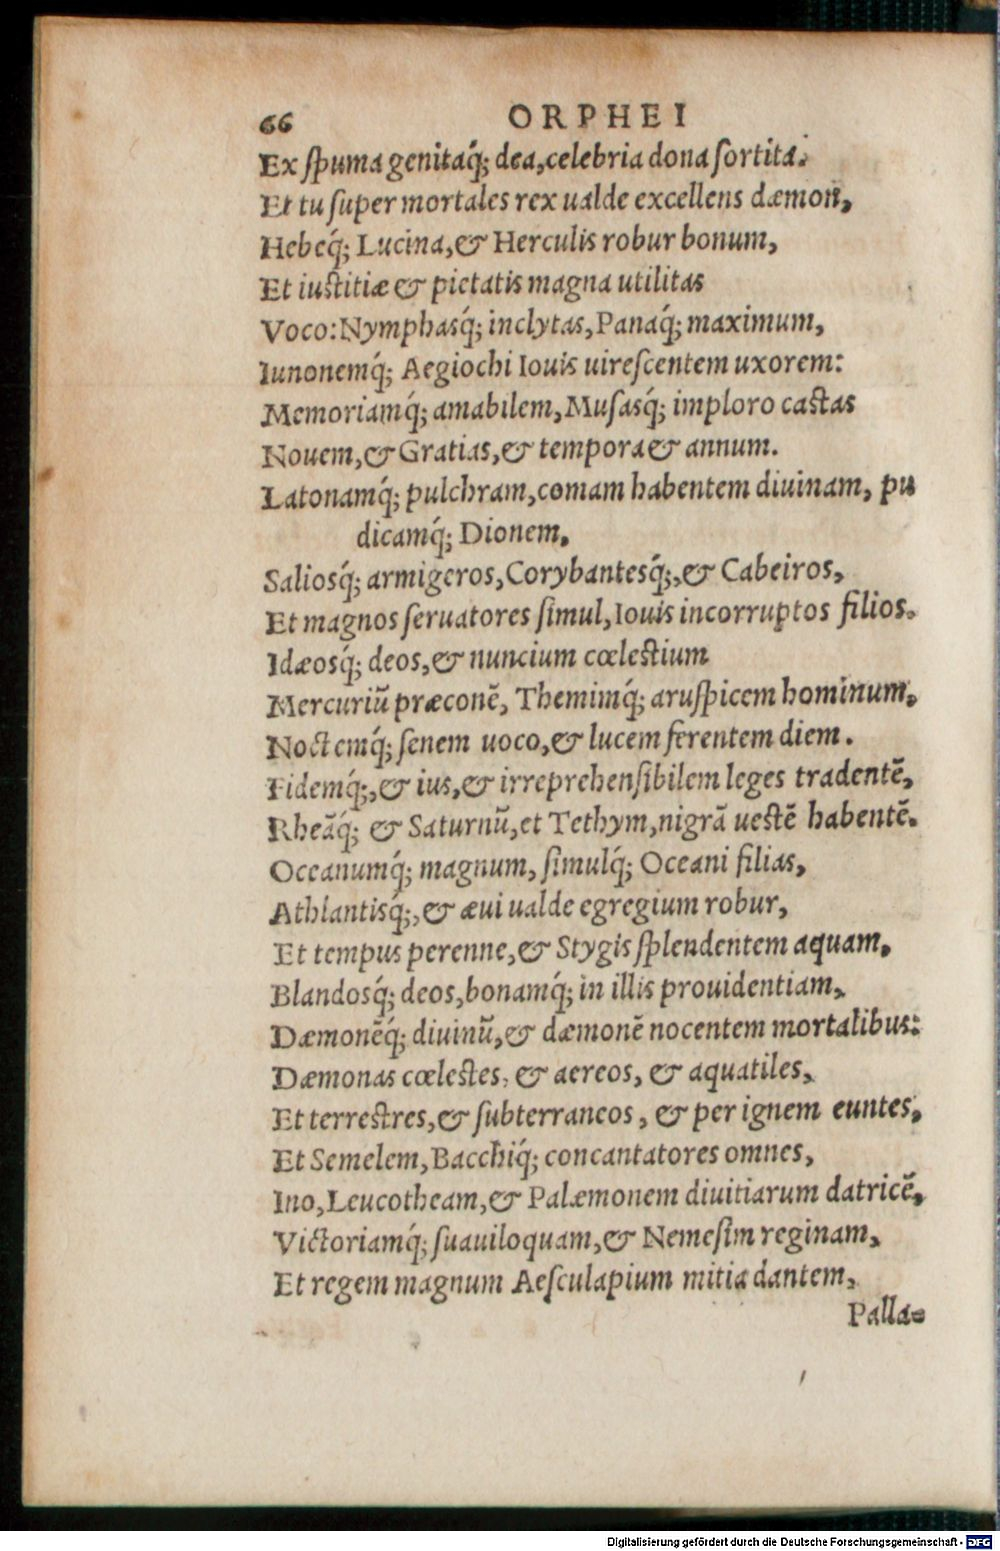 66 ORPHEI
Ex ſpuma genitaq́; dea,celebria dona ſortita.
Et tu ſuper mortales rex ualde excellens dæmon,
Hebeq́; Lucina,& Herculis robur bonum,
Et iuſtitiæ & pietatis magna utilitas
Voco:Nymphasq́; inclytas,Panaq́; maximum,
Iunonemq́; Aegiochi Iouis uireſcentem uxorem:
Memoriamq́; amabilem,Muſasq́; imploro caſtas
Nouem,& Gratias,& tempora & annum.
Latonamq́; pulchram,comam habentem diuinam, pu
dicamq́; Dionem,
Saliosq́; armigeros,Corybantesq́;,& Cabeiros,
Et magnos ſeruatores ſimul,Iouis incorruptos filios.
Idæosq́; deos,& nuncium cœleſtium
Mercuriũ præconẽ, Themimq́; aruſpicem hominum,
Noctemq́; ſenem uoco,& lucem ferentem diem.
Fidemq́;,& ius,& irreprehenſibilem leges tradentẽ,
Rheãq́; & Saturnũ,et Tethym,nigrã ueſtẽ habentẽ.
Oceanumq́; magnum, ſimulq́; Oceani filias,
Athlantisq́;,& æui ualde egregium robur,
Et tempus perenne,& Stygis ſplendentem aquam,
Blandosq́; deos,bonamq́; in illis prouidentiam,
Dæmonẽq́; diuinũ,& dæmonẽ nocentem mortalibus:
Dæmonas cœleſtes, & aereos, & aquatiles,
Et terreſtres,& ſubterraneos, & per ignem euntes,
Et Semelem,Bacchiq́; concantatores omnes,
Ino,Leucotheam,& Palæmonem diuitiarum datricẽ,
Victoriamq́; ſuauiloquam,& Nemeſim reginam,
Et regem magnum Aeſculapium mitia dantem,
Palla=
Digitalisierung gefördert durch die Deutsche Forschungsgemeinschaft - DFG